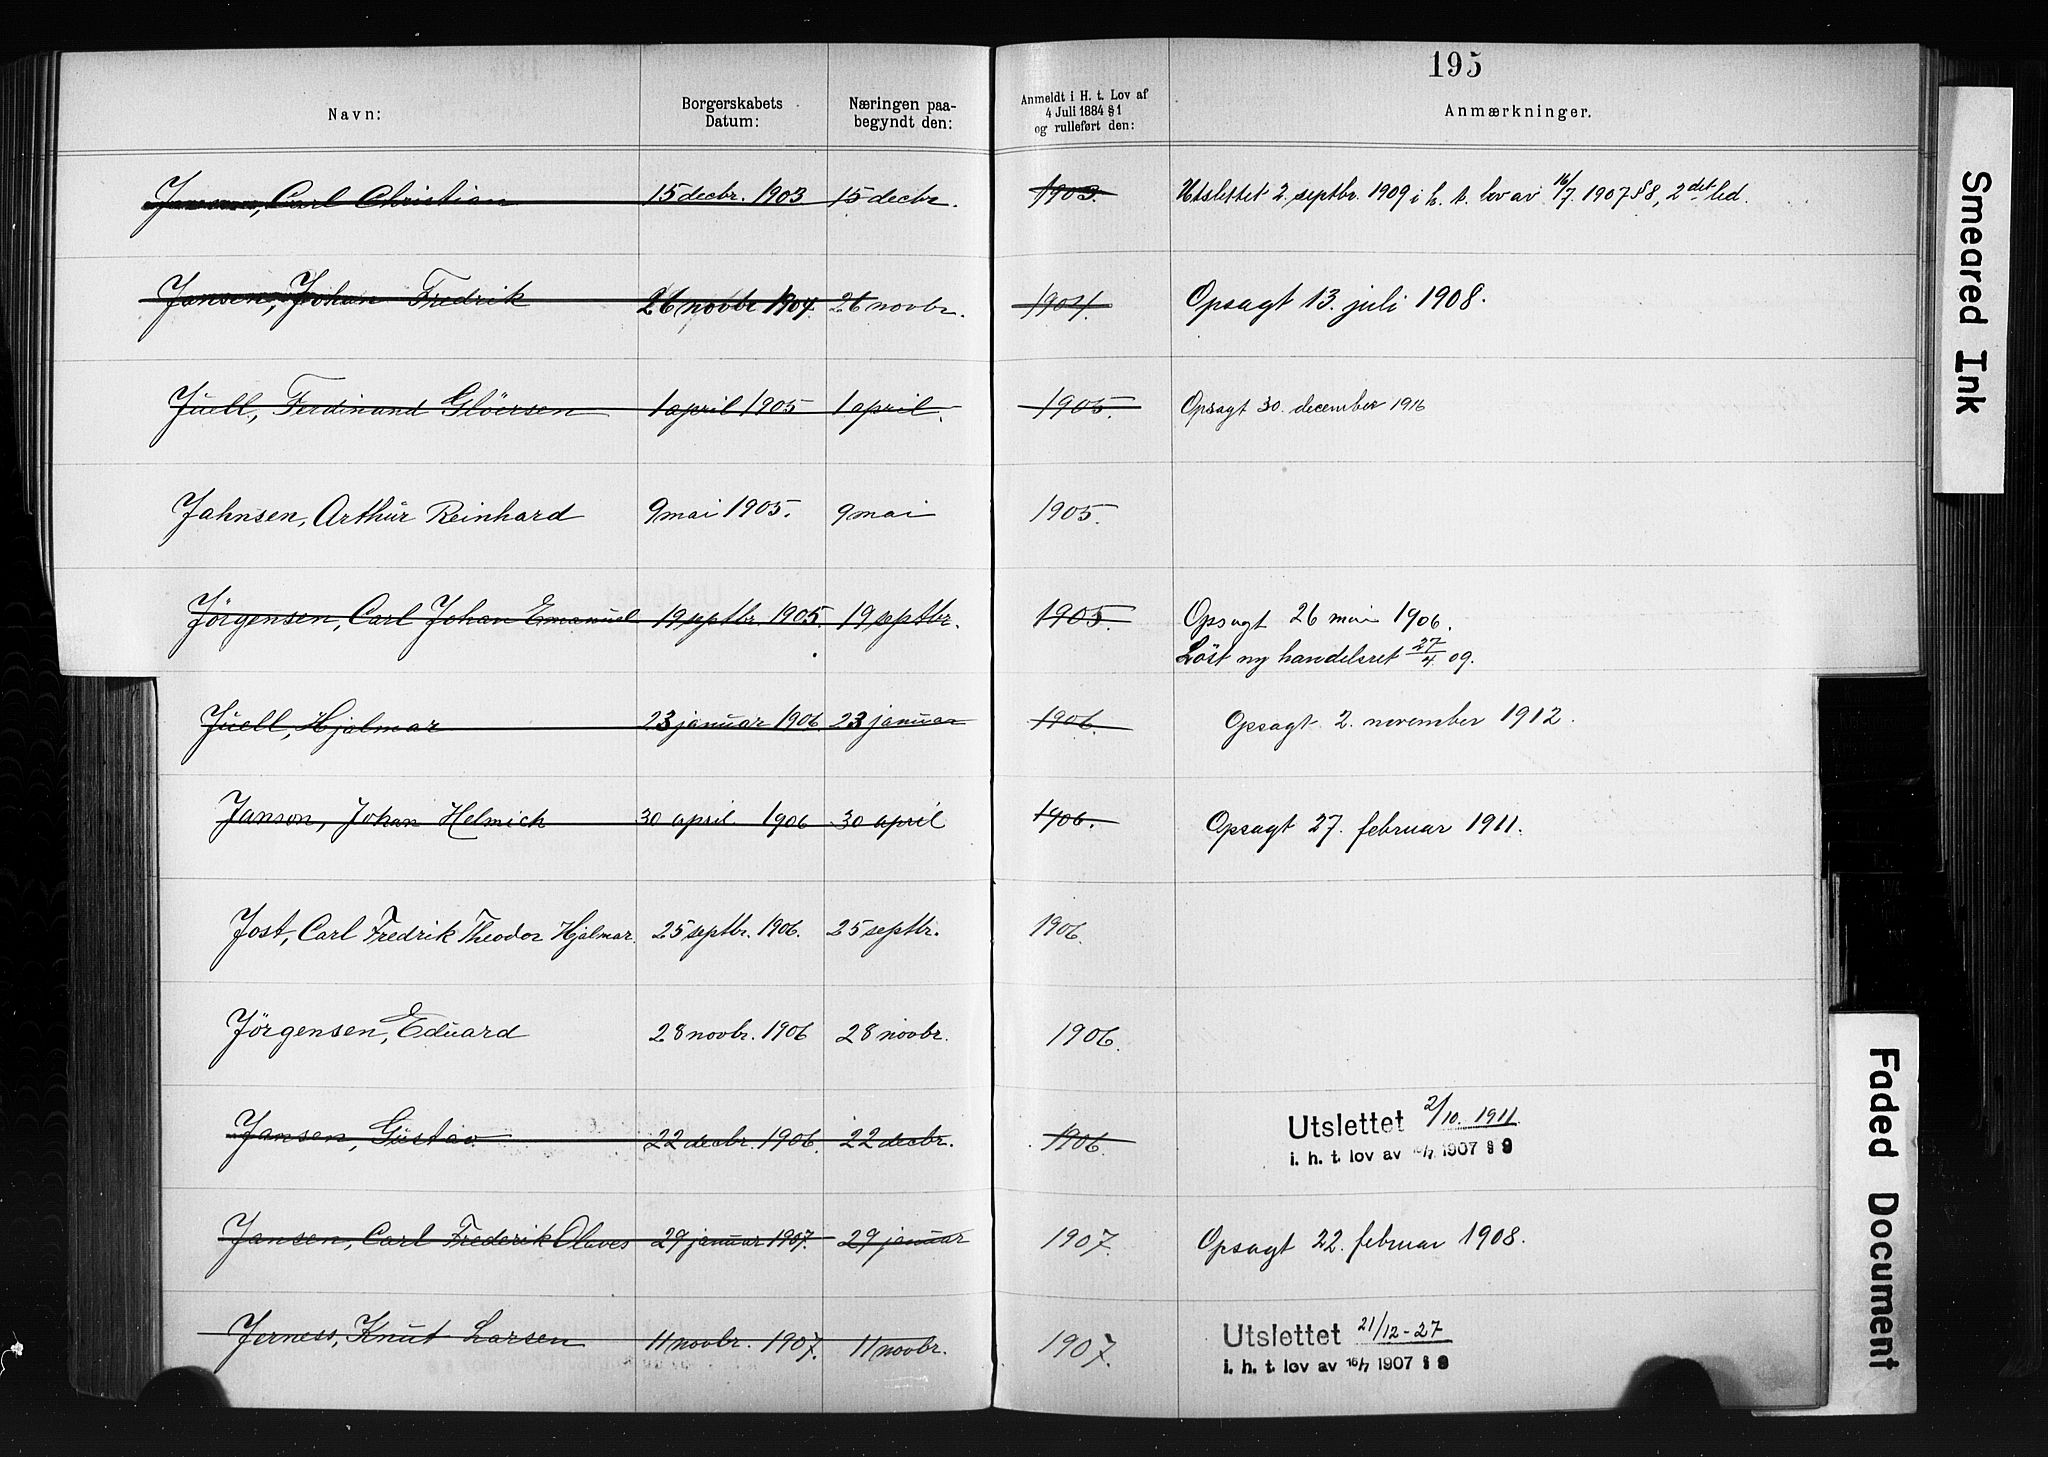 195
Navn: Borgerskabets Datum: Næringen paabegyndt den: Anmeldt i H. t. Lov af 4 Juli 1884 § 1 og rulleført den: Anmærkninger.
Jansen, Carl Christian 15 decbr. 1903 15 decbr. 1903. Utslettet 2. septbr. 1909 i h. t. lov av 16/7. 1907 § 8, 2det led.
Jansen, Johan Fredrik 26 novbr 1904 26 novbr. 1904. Opsagt 13. juli 1908.
Juell, Ferdinand Glöersen 1 april 1905 1 april. 1905. Opsagt 30. december 1916
Jahnsen, Arthur Reinhard 9 mai 1905. 9 mai 1905.
Jörgensen, Carl Johan Emanuel 19 septbr. 1905. 19 septbr. 1905. Opsagt 26 mai 1906.
Löst ny handelsret 27/4 09.
Juell, Hjalmar 23 januar 1906. 23 januar 1906. Opsagt 2. november 1912.
Janson, Johan Helmich 30 april 1906 30 april 1906. Opsagt 27. februar 1911.
Jost, Carl Fredrik Theodor Hjalmar. 25 septbr. 1906. 25 septbr. 1906.
Jörgensen, Eduard 28 novbr. 1906 28 novbr. 1906.
Jansen, Gustav. 22 decbr. 1906. 22 decbr. 1906. Utslettet 2/10. 1911.
i. h. t. lov av 16/7 1907 § 9
Jansen, Carl Frederik Olaves 29 januar 1907. 29 januar 1907. Opsagt 22. februar 1908.
Jerness, Knut Larsen 11 novbr. 1907. 11 novbr. 1907. Utslettet 21/12-27
i. h. t. lov av 16/7 1907 § 9
Smeared Ink
Faded Document